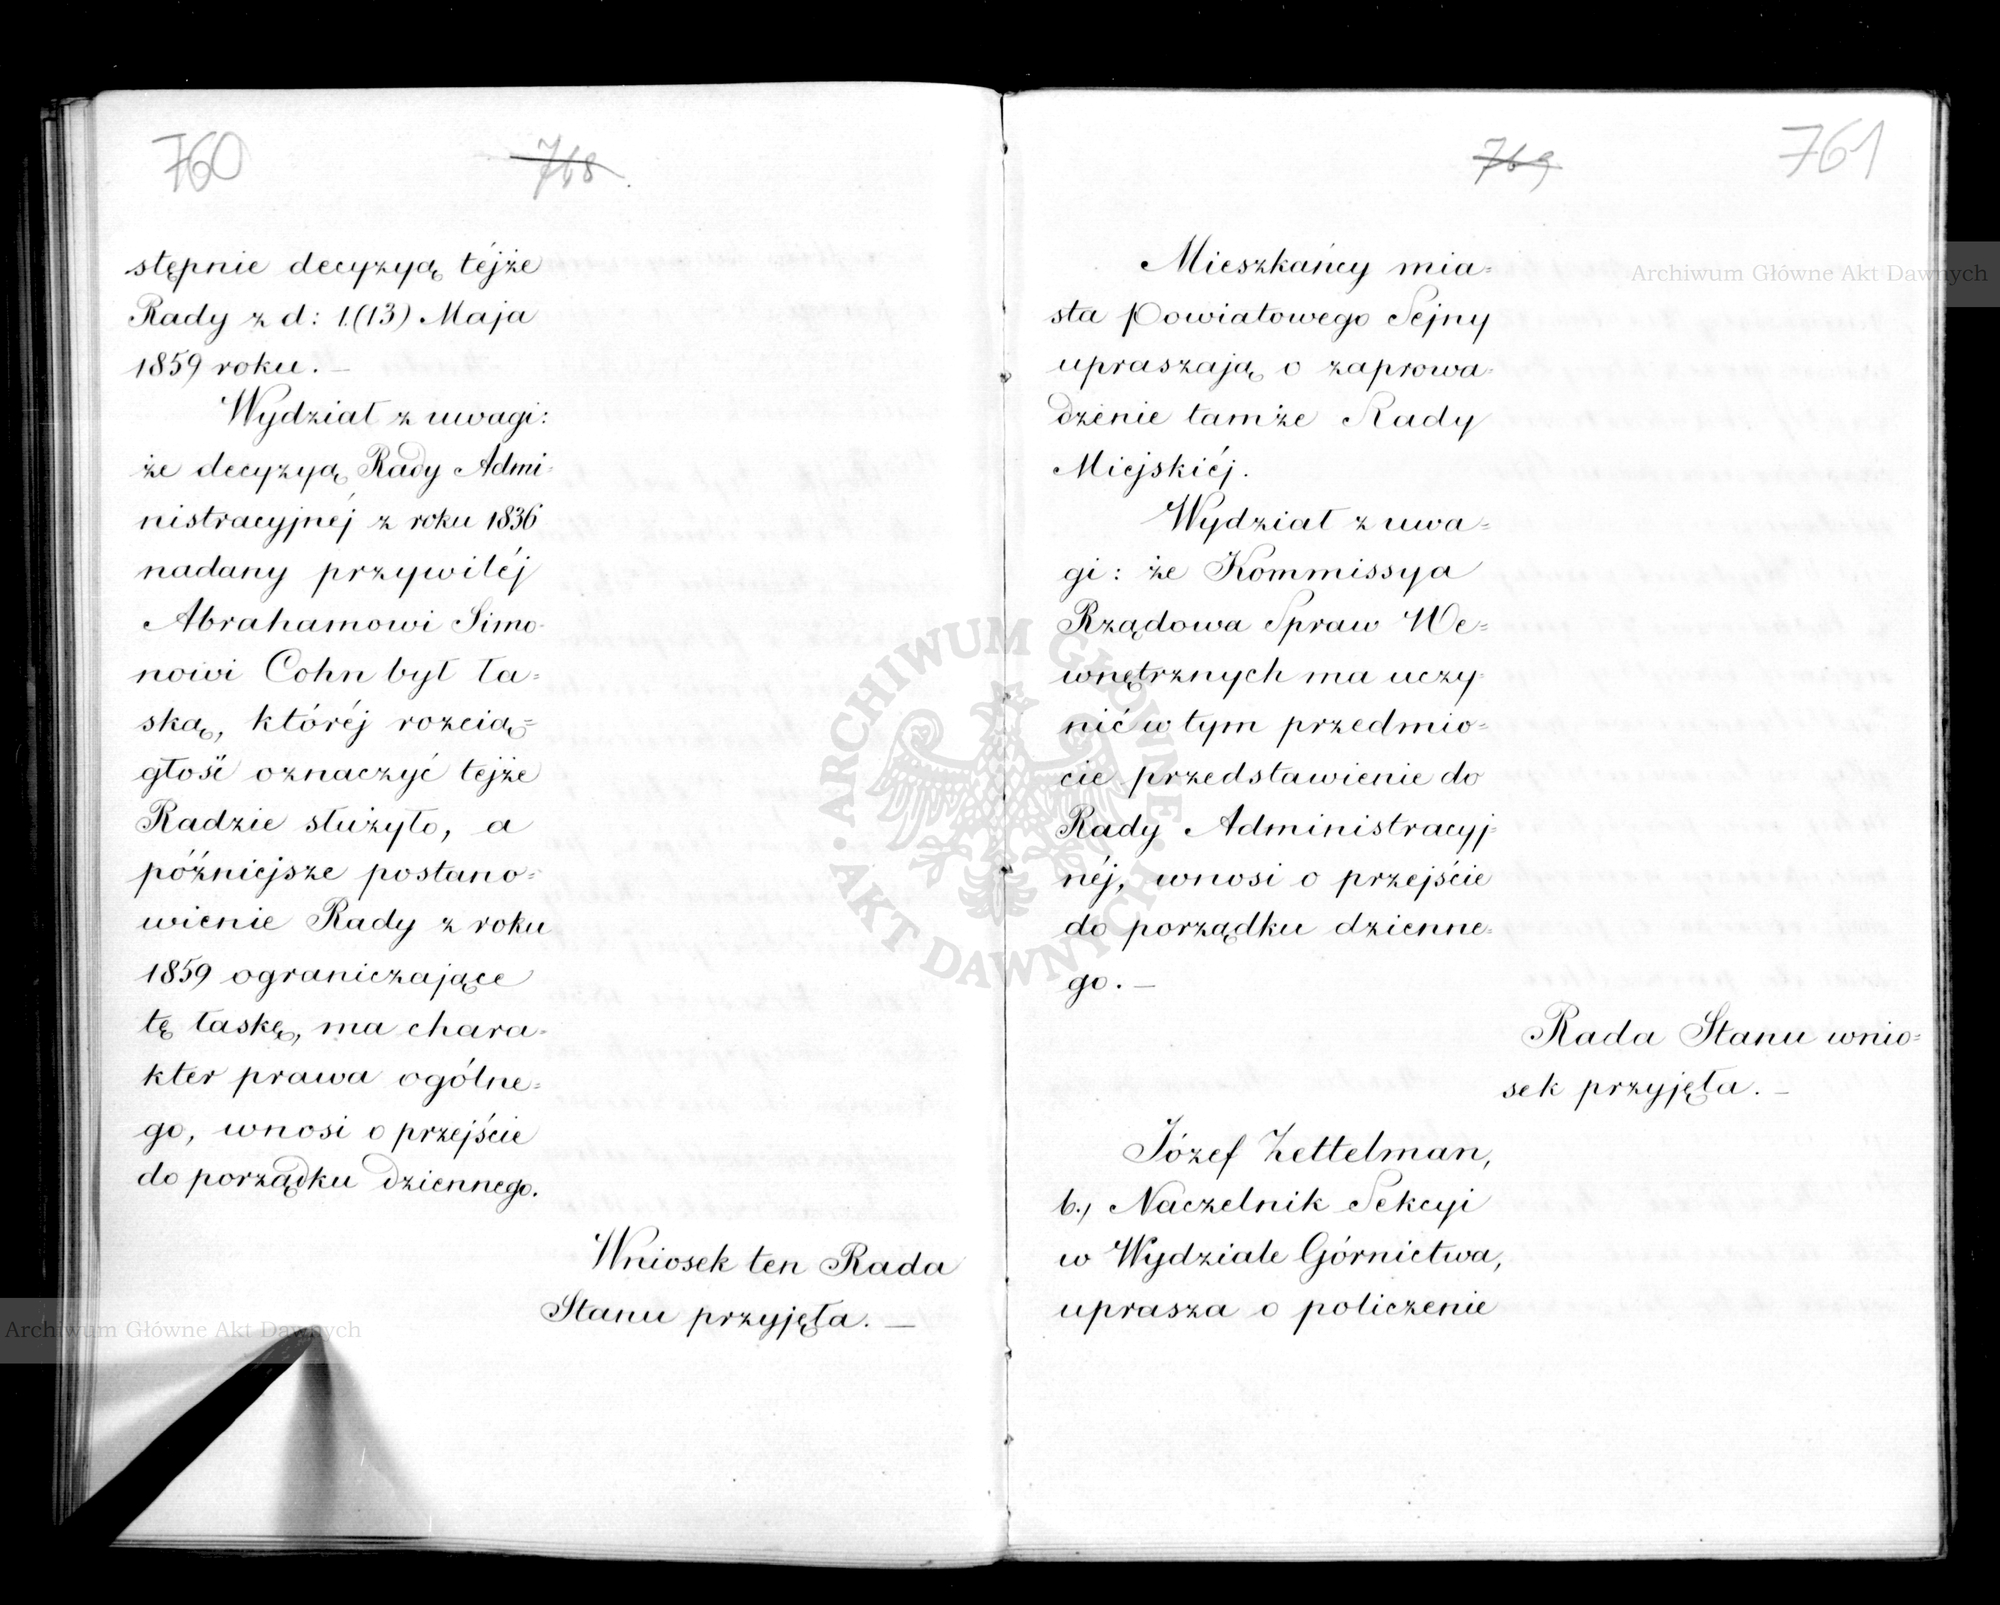 760
768
stępnie decyzyą téjże
Rady z d: 1.(13) Maja
1859 roku. –
Wydział z uwagi:
że decyzyą Rady Admi-
nistracyjnéj z roku 1836
nadany przywiléj
Abrahamowi Simo-
nowi Cohn był ła-
ską, któréj rozcią-
głość oznaczyć tejże
Radzie służyło, a
późniejsze postano-
wienie Rady z roku
1859 ograniczające
tę łaskę, ma chara-
kter prawa ogólne-
go, wnosi o przejście
do porządku dziennego.
Wniosek ten Rada
Stanu przyjęła. –
769
761
Mieszkańcy mia-
sta Powiatowego Sejny
upraszają o zaprowa-
dzenie tamże Rady
Miejskiéj.
Wydział z uwa-
gi: że Kommissya
Rządowa Spraw We-
wnętrznych ma uczy-
nić w tym przedmio-
cie przedstawienie do
Rady Administracyj-
néj, wnosi o przejście
do porządku dzienne-
go. –
Rada Stanu wnio-
sek przyjęła. –
Józef Zettelman,
b., Naczelnik Sekcyi
w Wydziale Górnictwa,
uprasza o policzenie
Archiwum Główne Akt Dawnych
ARCHIWUM GŁÓWNE · AKT DAWNYCH ·
Archiwum Główne Akt Dawnych